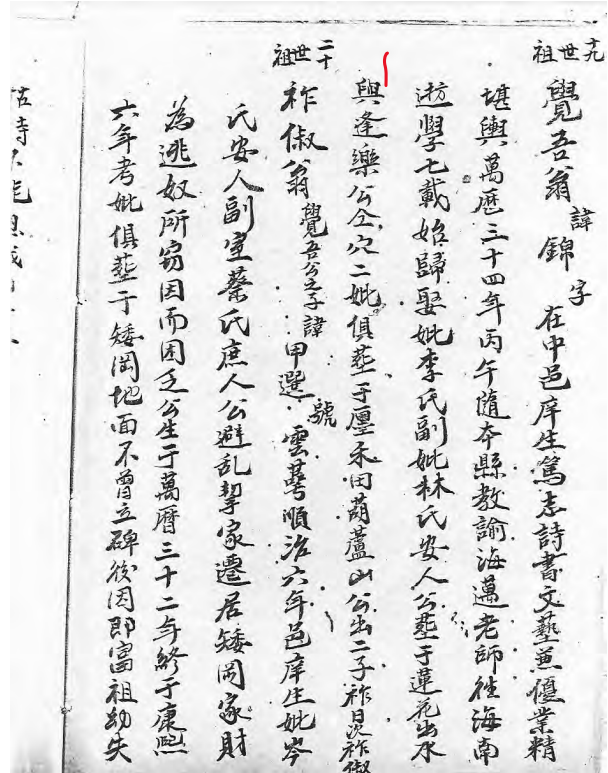 十九世祖
覺吾翁諱錦字在中邑庠生篤志詩書文藝兼優業精
堪輿萬歷三十四年丙午隨本縣教諭海邁老師徃海南
遊學七載始歸娶妣李氏副妣林氏安人公塟于蓮花出水
與逢樂公仝穴二妣俱塟于厘禾田葫蘆山公出二子祚日次祚俶
二十世祖
祚俶翁覺吾公之子諱甲選號雲萼順治六年邑庠生妣岑
氏安人副室蔡氏庶人公避乱挈家遷居矮岡家財
為逃奴所窃因而困乏公生于萬曆三十二年終于康熙
六年考妣俱塟于矮岡地面不曾立碑後因即富祖幼失